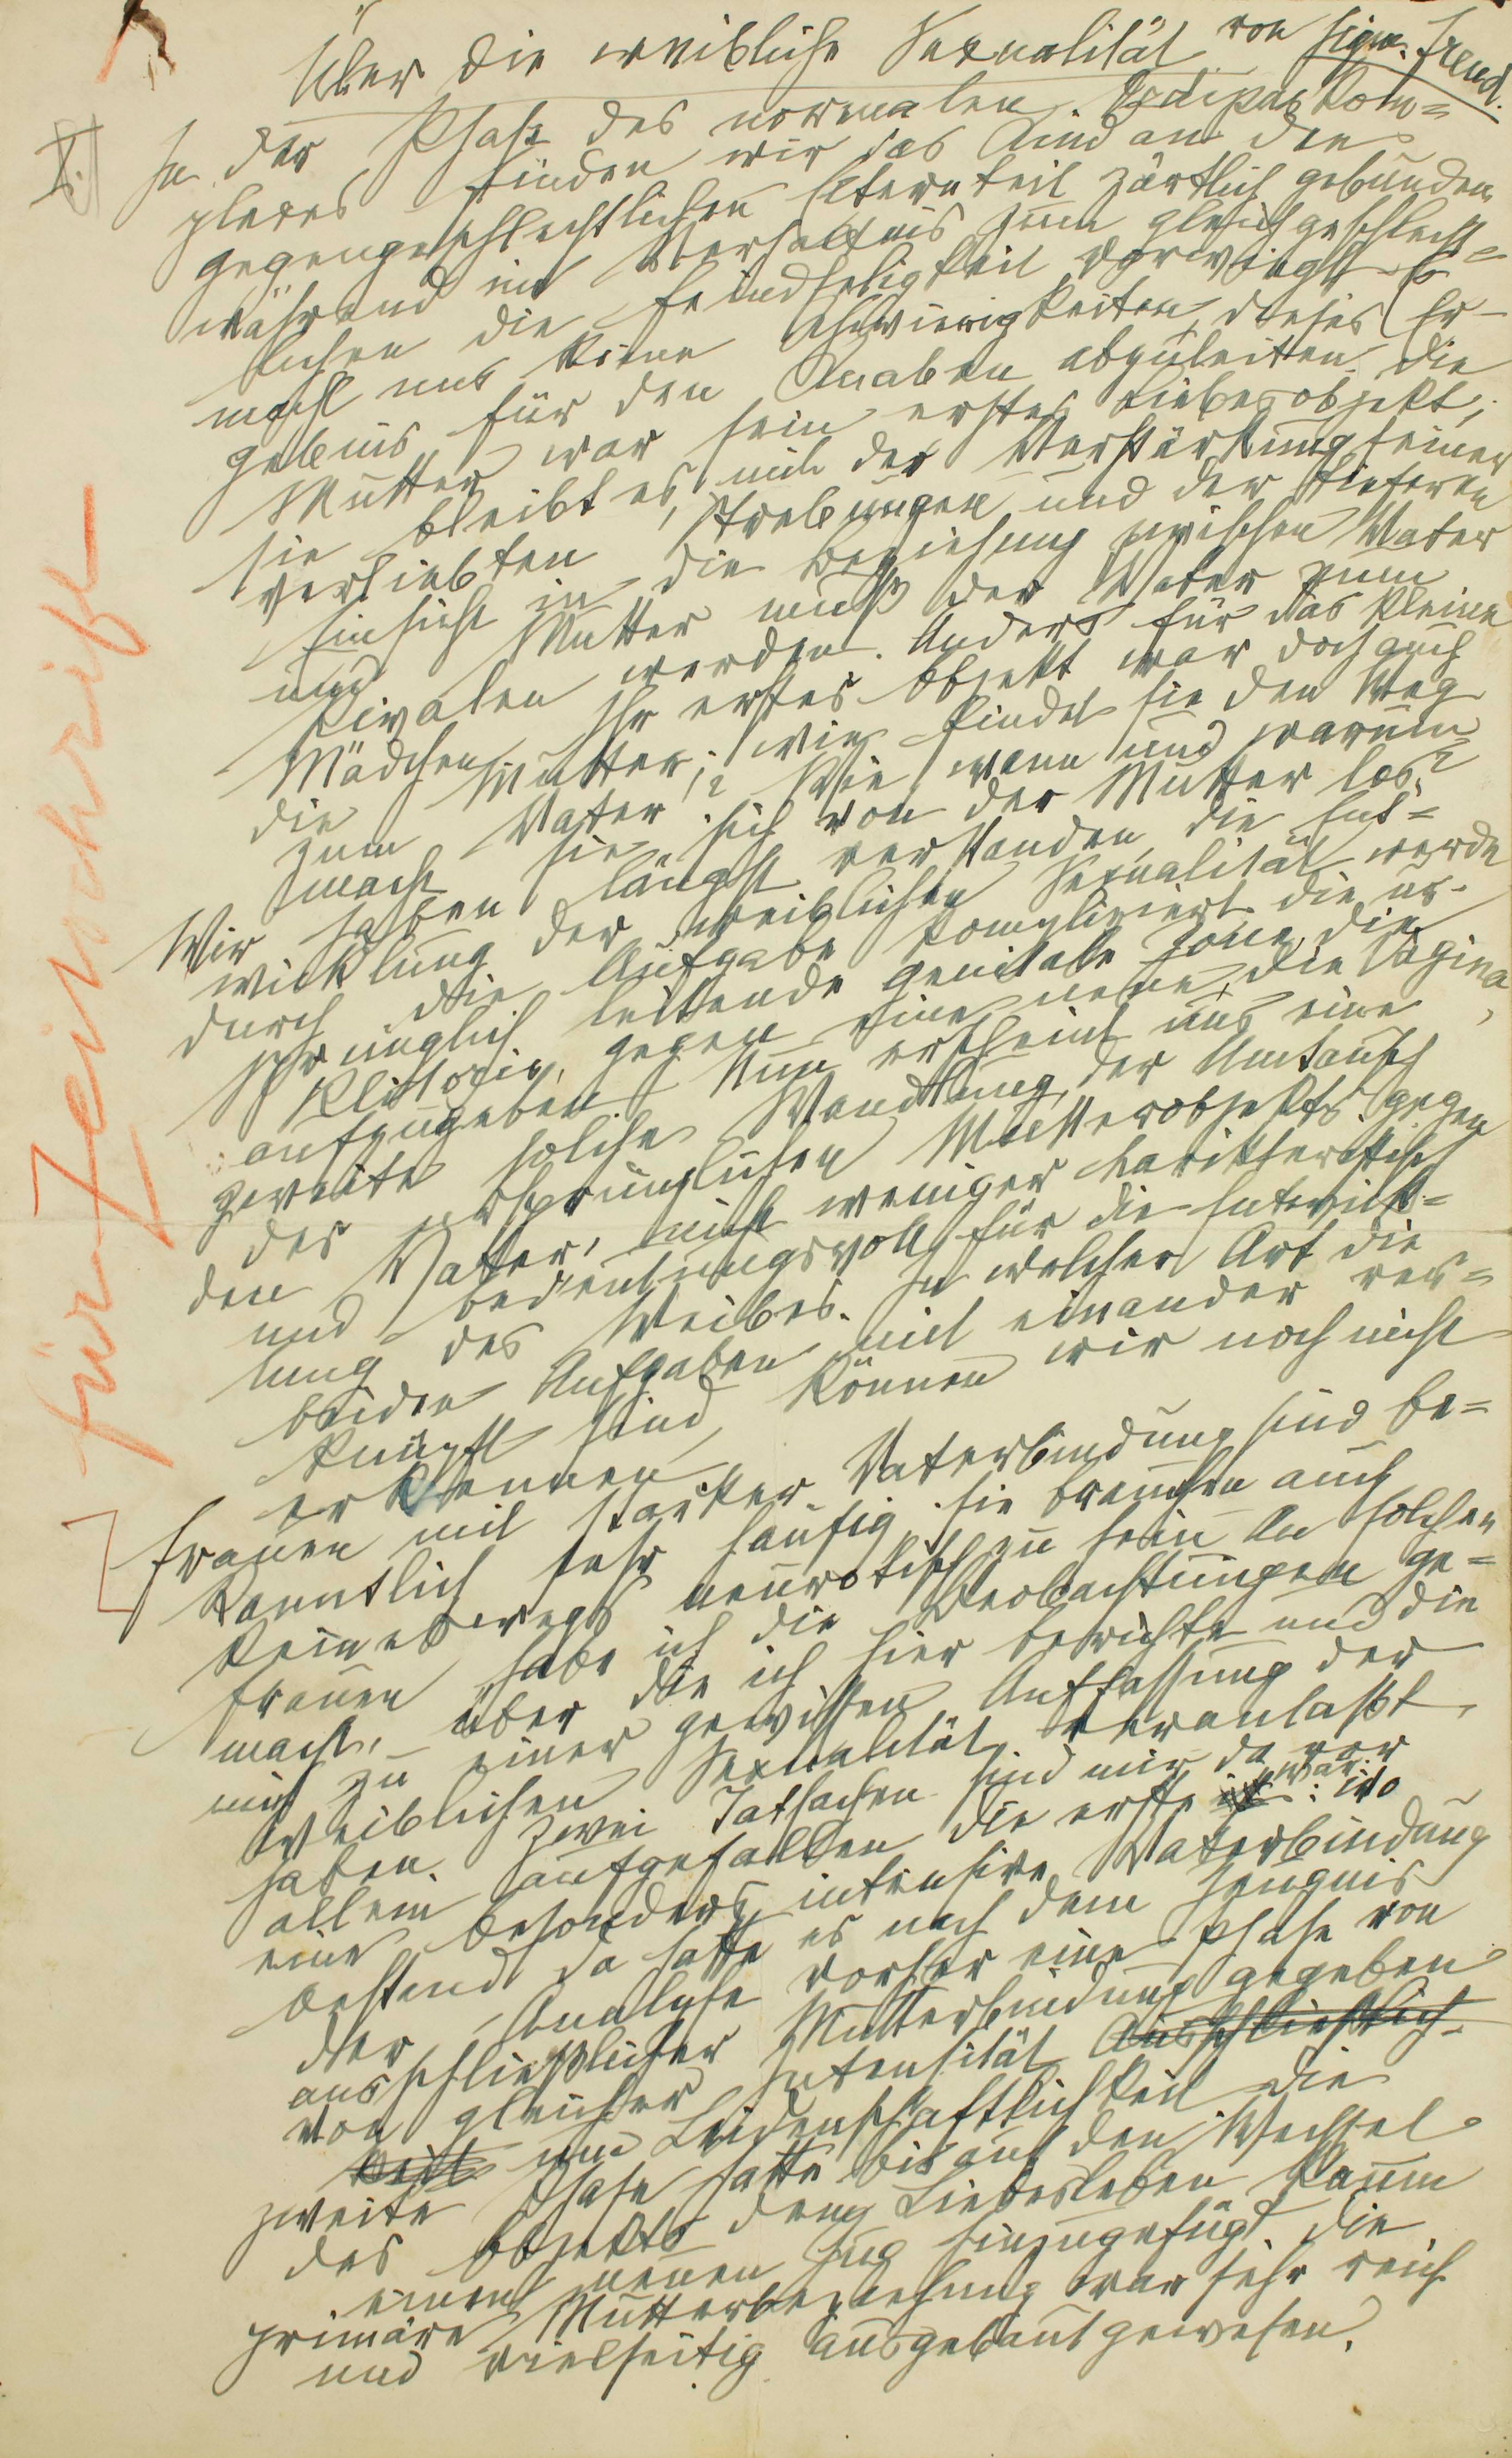 Über die weibliche Sexualität von Sigm. Freud.
I.
In der Phase des normalen Ödipuskom=
plexes finden wir das Kind an den
gegengeschlechtlichen Elternteil zärtlich gebunden,
während im Verhältnis zum gleichgeschlecht=
lichen die Feindseligkeit vorwiegt. Es
macht uns keine Schwierigkeiten, dieses Er-
gebnis für den Knaben abzuleiten. Die
Mutter war sein erstes Liebesobjekt;
sie bleibt es, mit der Verstärkung seiner
verliebten Strebungen und der tieferen
Einsicht in die Beziehung zwischen Vater
und Mutter muß der Vater zum
Rivalen werden. Anders für das kleine
Mädchen. Ihr erstes Objekt war doch auch
die Mutter; wie findet sie den Weg
zum Vater? Wie, wann und warum
macht sie sich von der Mutter los?
Wir haben längst verstanden, die Ent=
wicklung der weiblichen Sexualität werde
durch die Aufgabe kompliziert, die ur-
sprünglich leitende genitale Zone, die
Klitoris, gegen eine neue, die Vagina,
aufzugeben. Nun erscheint uns eine
zweite solche Wandlung, der Umtausch
des ursprünglichen Mutterobjekts gegen
den Vater, nicht weniger charakteristisch
und bedeutungsvoll für die Entwick=
lung des Weibes. In welcher Art die
beiden Aufgaben mit einander ver=
knüpft sind, können wir noch nicht
erkennen.
Frauen mit starker Vaterbindung sind be=
kanntlich sehr häufig, sie brauchen auch
keineswegs neurotisch zu sein. An solchen
Frauen habe ich die Beobachtungen ge=
macht, über die ich hier berichte und die
mich zu einer gewissen Auffassung der
weiblichen Sexualität veranlaßt
haben. Zwei Tatsachen sind mir da vor
allem aufgefallen. Die erste war: wo
eine besonders intensive Vaterbindung
bestand, da hatte es nach dem Zeugnis
der Analyse vorher eine Phase von
ausschließlicher Mutterbindung gegeben
von gleicher Intensität Ausschließlich-
keit und Leidenschaftlichkeit. Die
zweite Phase hatte bis auf den Wechsel
des Objekts dem Liebesleben kaum
einen neuen Zug hinzugefügt. Die
primäre Mutterbeziehung war sehr reich
und vielseitig ausgebaut gewesen.
für Zeinschrift